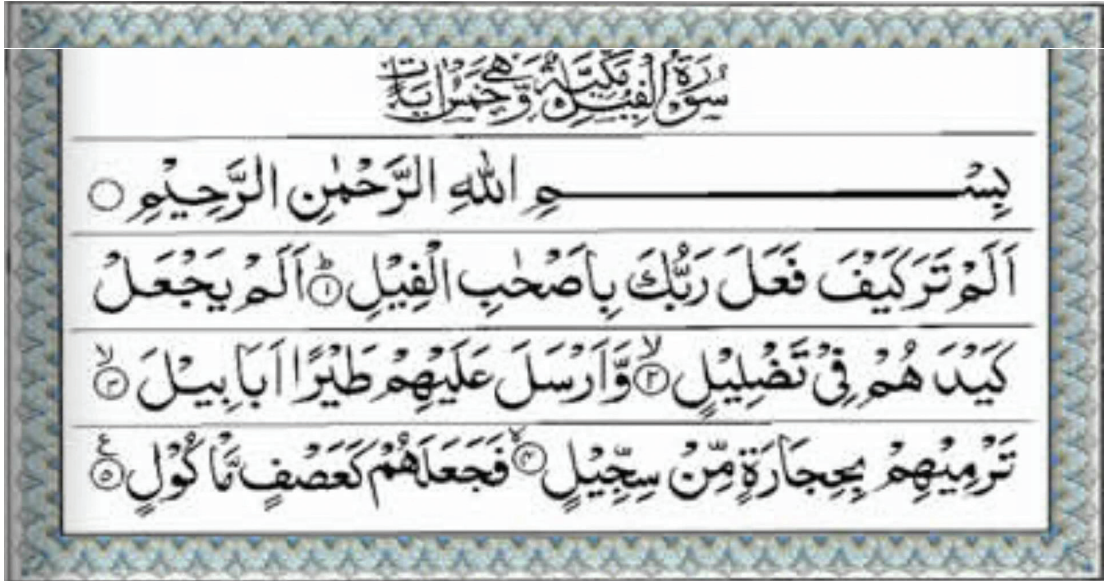 سُوْرَةُ الْفِيْلِ مَكِّيَّةٌ وَّهِيَ خَمْسُ اٰيَاتٍ
بِسْمِ اللهِ الرَّحْمٰنِ الرَّحِيْمِ ○
اَلَمْ تَرَ كَيْفَ فَعَلَ رَبُّكَ بِاَصْحٰبِ الْفِيْلِ ؕ﴿۱﴾ اَلَمْ يَجْعَلْ
كَيْدَ هُمْ فِيْ تَضْلِيْلٍ ۙ﴿۲﴾ وَّاَرْسَلَ عَلَيْهِمْ طَيْرًا اَبَابِيْلَ ۙ﴿۳﴾
تَرْمِيْهِمْ بِحِجَارَةٍ مِّنْ سِجِّيْلٍ ۙ﴿۴﴾ فَجَعَلَهُمْ كَعَصْفٍ مَّاْكُوْلٍ ﴿۵﴾ ع